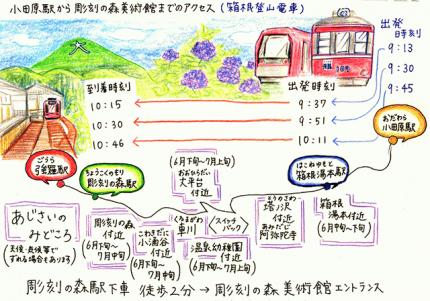 小田原駅から彫刻の森美術館までのアクセス (箱根登山電車)
出発
時刻
9:13
9:30
9:45
到着時刻
出発時刻
10:15
9:37
10:30
9:51
10:46
10:11
おだわら
小田原駅
ごうら
強羅駅
ちょうこくのもり
彫刻の森駅
はこねゆもと
箱根湯本駅
あじさいの
みどころ
(天候・気候等で
ずれる場合もあります)
彫刻の森
付近
(6月下旬〜
7月中旬)
こわきだに
小涌谷
付近
(6月下旬〜
7月中旬)
(6月下旬〜7月上旬)
おおひらだい
大平台
付近
スイッチ
バック
温泉幼稚園
付近
(6月下旬〜7月上旬)
とうのさわ
塔ノ沢
付近
あみだじ
阿弥陀寺
箱根
湯本付近
(6月中旬〜下旬)
彫刻の森駅下車 徒歩2分 → 彫刻の森美術館エントランス